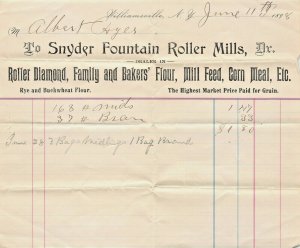 Williamsville, N.Y. June 11th 1898
M Albert Hyer
To Snyder Fountain Roller Mills, Dr.
DEALER IN
Roller Diamond, Family and Bakers' Flour, Mill Feed, Corn Meal, Etc.
Rye and Buckwheat Flour. The Highest Market Price Paid for Grain.
168 # mids 1 47
37 # Bran 33
$1 80
June 28 2 Bags Midlings 1 Bag Brand